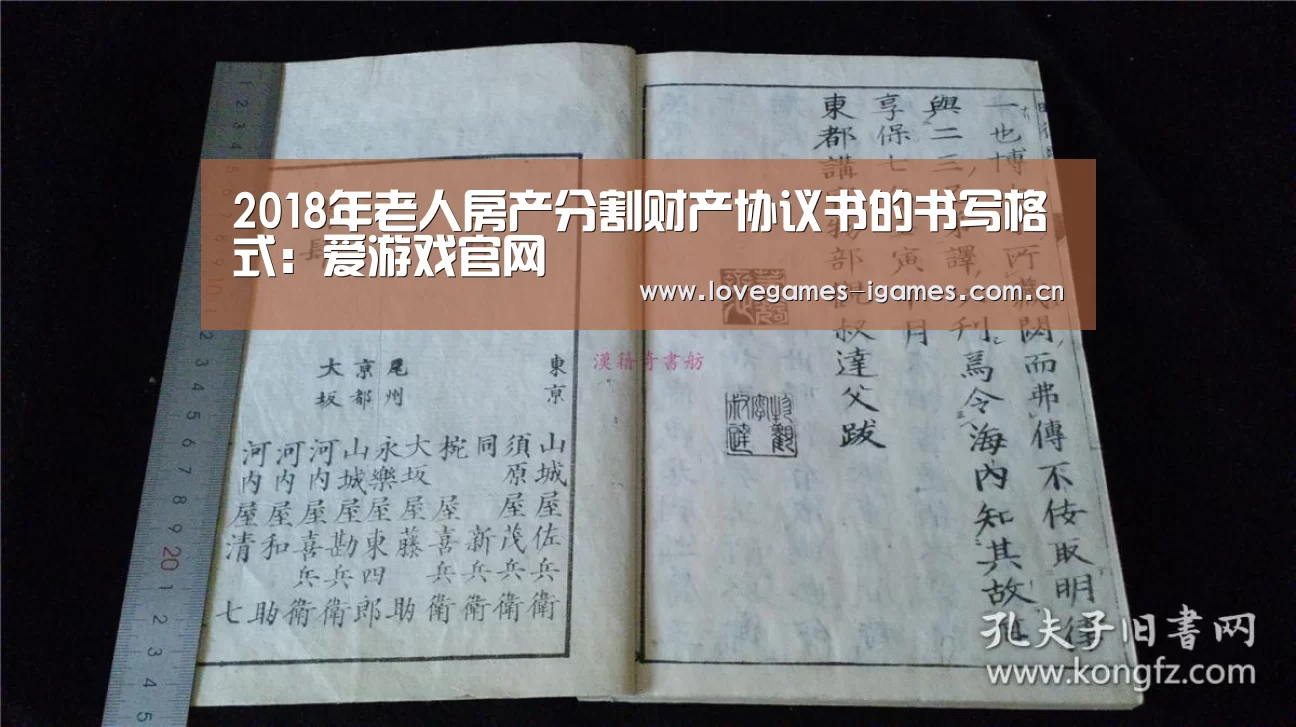 2018年老人房产分割财产协议书的书写格
式：爱游戏官网
www.lovegames-igames.com.cn
一也博
所藏閱而弗傳不佞取明
與二三
譯
利焉令海内知其故
享保七
寅
月
東都講
物部觀叔達父跋
漢籍奇書舫
東京
山城屋佐兵衛
須原屋茂兵衛
同
新兵衛
椀屋喜兵衛
大坂屋藤助
尾州
永樂屋東四郎
京都
山城屋勘兵衛
大坂
河内屋喜兵衛
河内屋和助
河内屋清七
20
孔夫子旧書网
www.kongfz.com